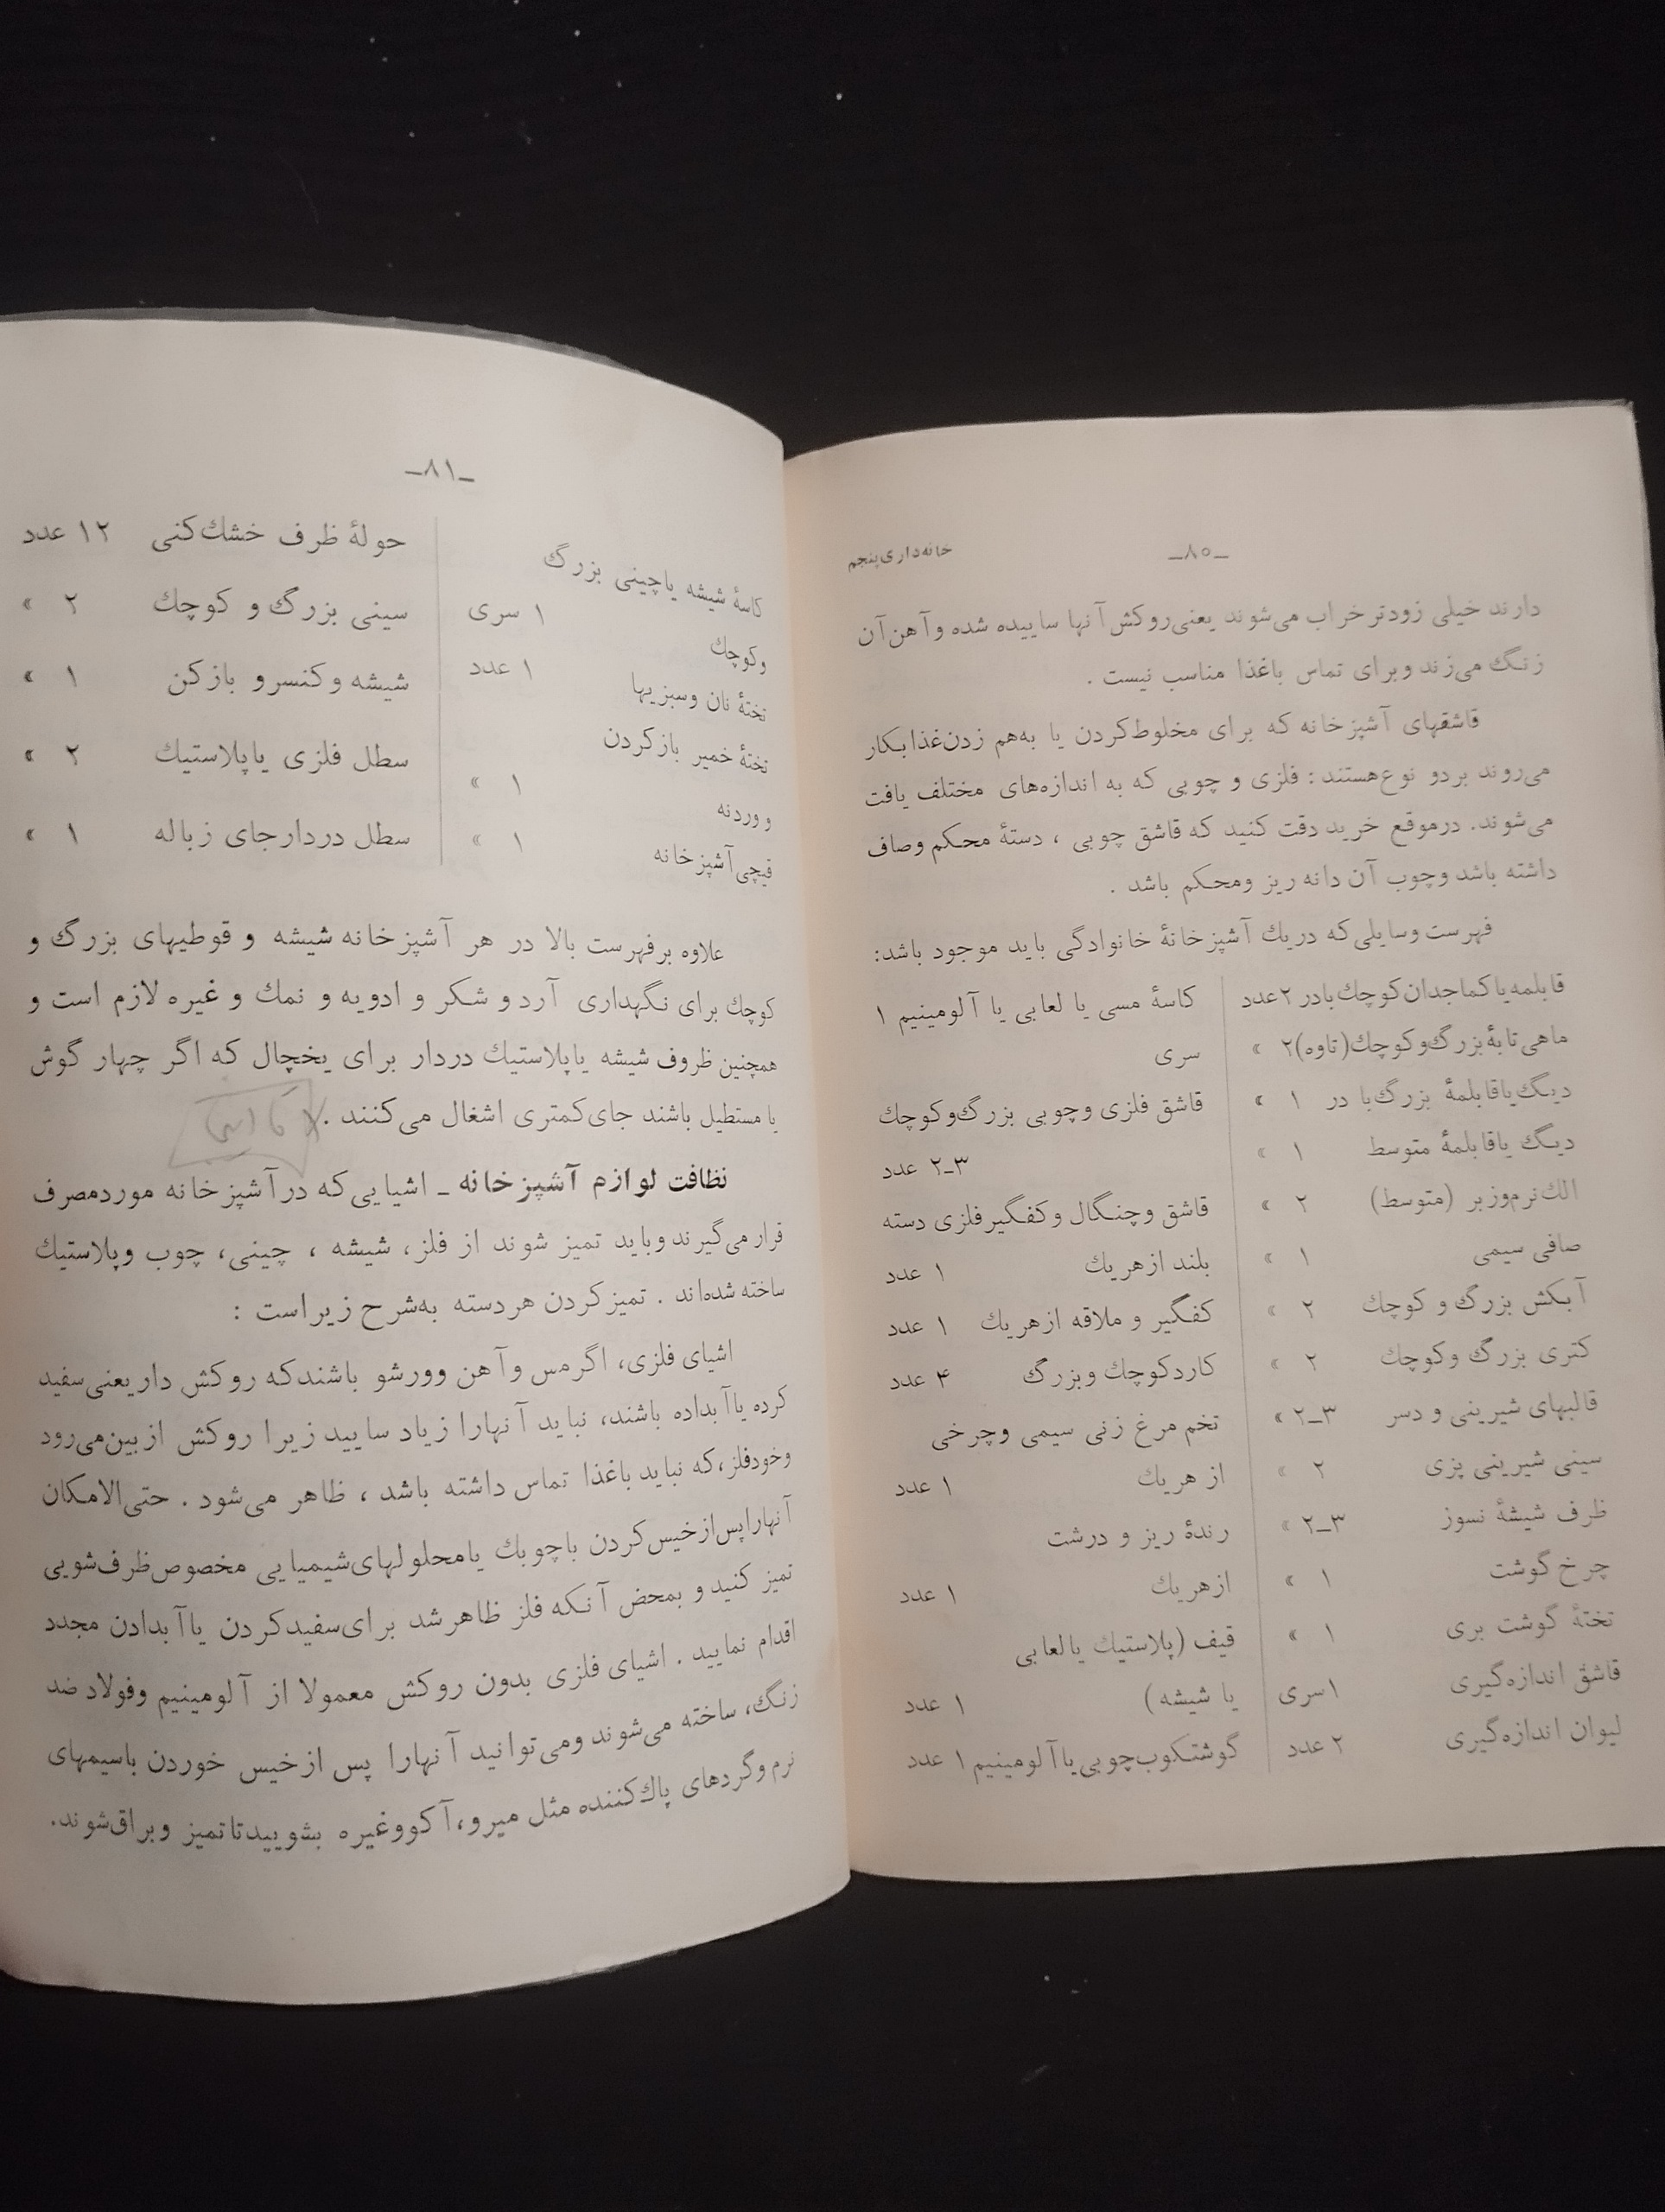 خانه‌داری پنجم
ـ۸۰ـ
دارند خیلی زودتر خراب می‌شوند یعنی روکش آنها ساییده شده و آهن آن
زنگ می‌زند و برای تماس باغذا مناسب نیست .
قاشقهای آشپزخانه که برای مخلوط کردن یا به‌هم زدن غذا بکار
می‌روند بردو نوع هستند : فلزی و چوبی که به اندازه‌های مختلف یافت
می‌شوند. درموقع خرید دقت کنید که قاشق چوبی ، دستهٔ محکم وصاف
داشته باشد وچوب آن دانه ریز ومحکم باشد .
فهرست وسایلی که دریك آشپزخانهٔ خانوادگی باید موجود باشد:
قابلمه یا کماجدان کوچك بادر ۲ عدد
ماهی تابهٔ بزرگ و کوچك (تاوه) ۲ »
دیگ یاقابلمهٔ بزرگ با در ۱ »
دیگ یاقابلمهٔ متوسط ۱ »
الك نرم وزبر (متوسط) ۲ »
صافی سیمی ۱ »
آبکش بزرگ و کوچك ۲ »
کتری بزرگ و کوچك ۲ »
قالبهای شیرینی و دسر ۳ـ۲ »
سینی شیرینی پزی ۲ »
ظرف شیشهٔ نسوز ۳ـ۲ »
چرخ گوشت ۱ »
تختهٔ گوشت بری ۱ »
قاشق اندازه‌گیری ۱ سری
لیوان اندازه‌گیری ۲ عدد
کاسهٔ مسی یا لعابی یا آلومینیم ۱
سری
قاشق فلزی وچوبی بزرگ و کوچك
۳ـ۲ عدد
قاشق وچنگال و کفگیر فلزی دسته
بلند ازهریك ۱ عدد
کفگیر و ملاقه ازهریك ۱ عدد
کارد کوچك وبزرگ ۴ عدد
تخم مرغ زنی سیمی وچرخی
از هریك ۱ عدد
رندهٔ ریز و درشت
ازهریك ۱ عدد
قیف (پلاستیك یا لعابی
یا شیشه) ۱ عدد
گوشتکوب چوبی یا آلومینیم ۱ عدد
ـ۸۱ـ
کاسهٔ شیشه یاچینی بزرگ
وکوچك ۱ سری
تختهٔ نان وسبزیها ۱ عدد
تختهٔ خمیر بازکردن
و وردنه ۱ »
قیچی آشپزخانه ۱ »
حولهٔ ظرف خشك‌کنی ۱۲ عدد
سینی بزرگ و کوچك ۲ »
شیشه و کنسرو بازکن ۱ »
سطل فلزی یاپلاستیك ۲ »
سطل دردارجای زباله ۱ »
علاوه برفهرست بالا در هر آشپزخانه شیشه و قوطیهای بزرگ و
کوچك برای نگهداری آرد و شکر و ادویه و نمك و غیره لازم است و
همچنین ظروف شیشه یاپلاستیك دردار برای یخچال که اگر چهار گوش
یا مستطیل باشند جای کمتری اشغال می‌کنند .
نظافت لوازم آشپزخانه ـ اشیایی که درآشپزخانه موردمصرف
قرار می‌گیرند وباید تمیز شوند از فلز، شیشه ، چینی، چوب وپلاستیك
ساخته شده‌اند . تمیز کردن هر دسته به‌شرح زیراست :
اشیای فلزی، اگرمس وآهن وورشو باشندکه روکش دار یعنی سفید
کرده یاآبداده باشند، نباید آنهارا زیاد سایید زیرا روکش ازبین می‌رود
وخودفلز، که نباید باغذا تماس داشته باشد ، ظاهر می‌شود . حتی‌الامکان
آنهاراپس ازخیس کردن باچوبك یامحلولهای شیمیایی مخصوص ظرف‌شویی
تمیز کنید و بمحض آنکه فلز ظاهرشد برای سفیدکردن یاآبدادن مجدد
اقدام نمایید . اشیای فلزی بدون روکش معمولا از آلومینیم وفولاد ضد
زنگ، ساخته می‌شوند ومی‌توانید آنهارا پس ازخیس خوردن باسیمهای
نرم وگردهای پاك‌کننده مثل میرو، آکووغیره بشوییدتاتمیز وبراق‌شوند.